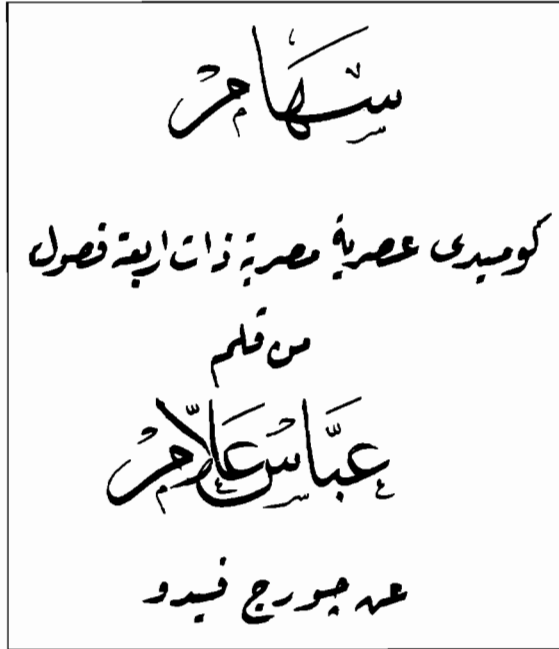 سهام
كوميدى عصرية مصرية ذات اربعة فصول
من قلم
عبَّاس علَّام
عن چورج فيدو